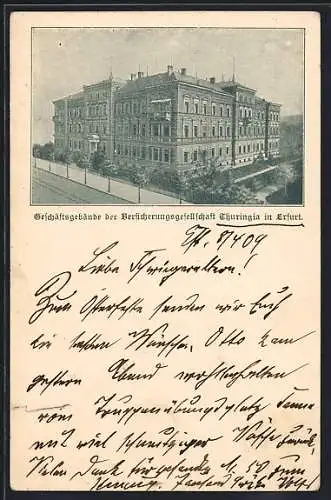 Geschäftsgebäude der Versicherungsgesellschaft Thuringia in Erfurt.
Eft. 8/4 09
Liebe Schwiegereltern!
Zum Osterfeste senden wir Euch
die besten Wünsche. Otto kam
gestern Abend wohlbehalten
vom Truppenübungsplatz
mit viel schmutziger Wäsche zurück.
Vielen Dank für gesandte M. 50 zum